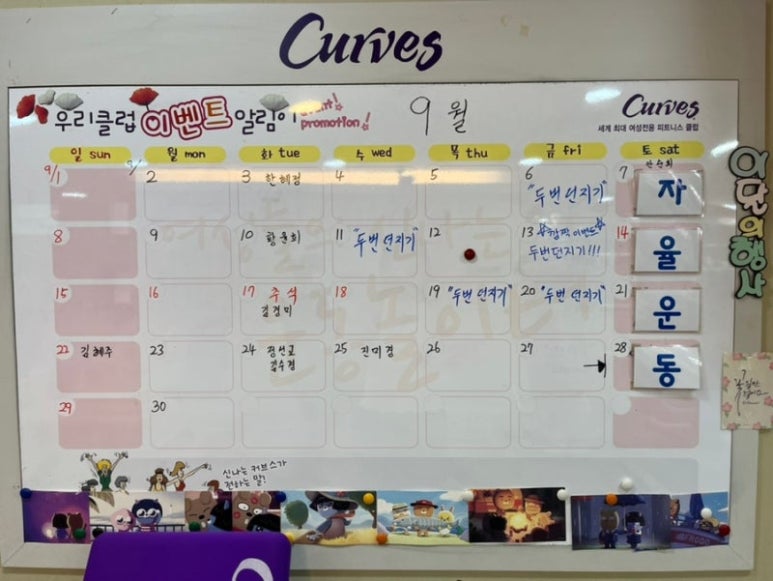 Curves
우리클럽 이벤트 알림이
event!
promotion!
9월
Curves
세계 최대 여성전용 피트니스 클럽
일 sun 월 mon 화 tue 수 wed 목 thu 금 fri 토 sat
9/1 2 3 한혜정 4 5 6 7
"두번 던지기"
자
8 9 10 황윤희 11 "두번 던지기" 12 13 14
이벤트
두번던지기!!!
율
15 16 17 추석 18 19 "두번 던지기" 20 "두번 던지기" 21
김경미
운
22 김혜주 23 24 정선교 25 진미경 26 27 28
김수경
동
29 30
이달의 행사
신나는 커브스가
전하는 말!